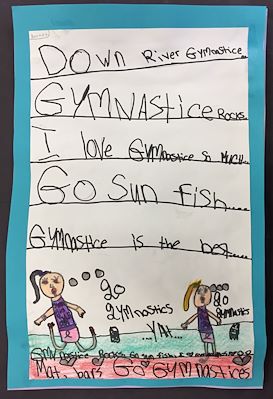 DOWN River Gymnastice...
GYMNAStice Rocks.
I love Gymnastice So Much...
GO SuN fish....
Gymnastice is the best.....
Go Gymnastics
...YAL...
Go Gymnastics
Gymnastice Rocks Go sun fish
Mat, bars GO GYMNASTICES